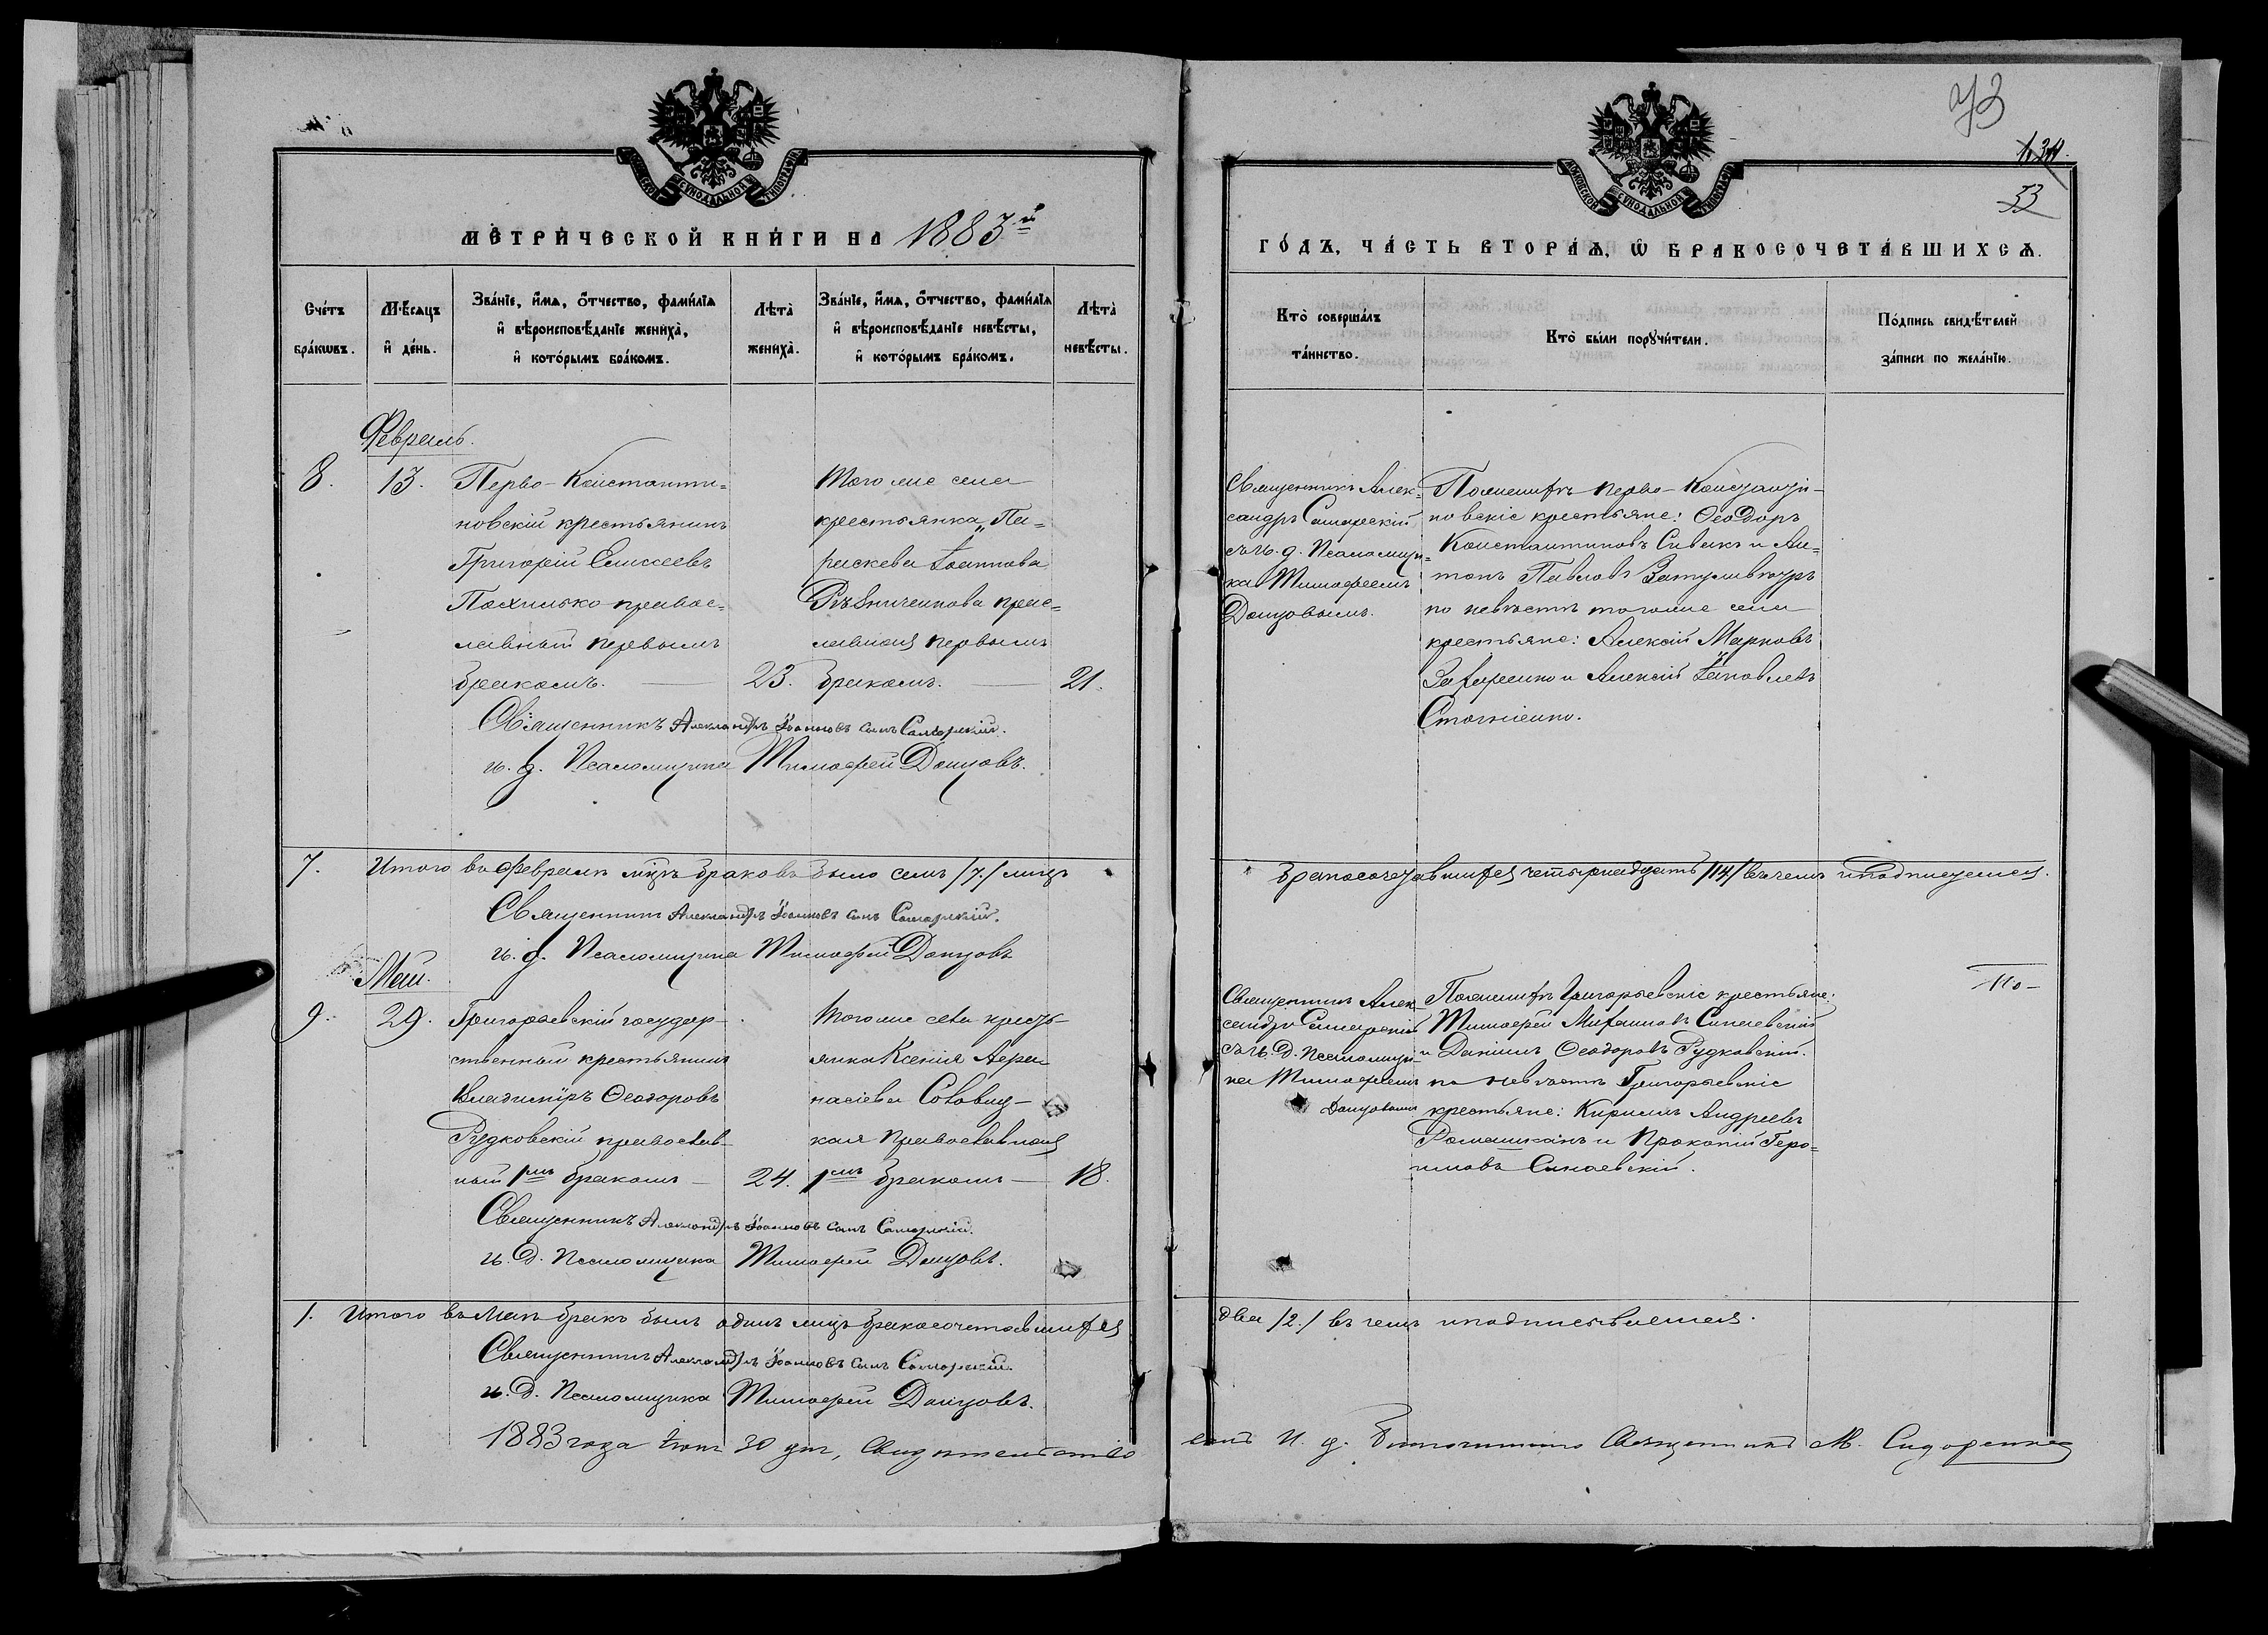 73
134.
53
МОСКОВСКОЙ СѴНОДАЛЬНОЙ ТИПОГРАФІИ
МЕТРИЧЕСКОЙ КНИГИ НА 1883й
Счетъ браковъ.
Мѣсяцъ и день.
Званіе, имя, отчество, фамилія
и вѣроисповѣданіе жениха,
и которымъ бракомъ.
Лѣта жениха.
Званіе, имя, отчество, фамилія
и вѣроисповѣданіе невѣсты,
и которымъ бракомъ.
Лѣта невѣсты.
Февраль.
8. 13.
Перво-Константи=
новскій крестьянинъ
Григорій Елисеевъ
Похилько правос=
лавный первымъ
бракомъ. — 23.
Того же села
крестьянка, Па=
раскева Іоаннова
Рѣзниченкова прас=
лавная первымъ
бракомъ. — 21.
Священникъ Александръ Іоанновъ сынъ Самарскій.
и. д. Псаломщика Тимофей Донцовъ.
7. Итого въ Февралѣ мцѣ браковъ было семь /7./ лицъ
Священникъ Александръ Іоанновъ сынъ Самарскій.
и. д. Псаломщика Тимофей Донцовъ
Май.
9. 29.
Григорьевскій государ-
ственный крестьянинъ
Владиміръ Ѳеодоровъ
Рудковскій православ-
ный 1мъ бракомъ — 24.
Того же села кресть-
янка Ксенія Афа
насіева Соловиц-
кая православная
1мъ бракомъ — 18.
Священникъ Александръ Іоанновъ сынъ Самарскій.
и. д. Псаломщика Тимофей Донцовъ.
1. Итого въ Маѣ бракъ былъ одинъ лицъ бракосочетавшихся
Священникъ Александръ Іоанновъ сынъ Самарскій.
и. д. Псаломщика Тимофей Донцовъ.
1883 года Іюня 30 дня, Свидѣтельство
МОСКОВСКОЙ СѴНОДАЛЬНОЙ ТИПОГРАФІИ
ГОДЪ, ЧАСТЬ ВТОРАЯ, Ѡ БРАКОСОЧЕТАВШИХСЯ.
Кто совершалъ таинство.
Кто были поручители.
Подпись свидѣтелей записи по желанію.
Священникъ Алек=
сандръ Самарскій
съ и. д. Псаломщи=
ка Тимофеемъ
Донцовымъ.
По женихѣ Перво-Константи-
новскіе крестьяне: Ѳеодоръ
Константиновъ Сивакъ и Ан=
тонъ Павловъ
по невѣстѣ того же села
крестьяне: Алексій Марковъ
Захаренко и Алексій Іаковлевъ
Стогніенко.
бракосочетавшихся четырнадцать /14/ въ чемъ и подписуемся.
Священникъ Алек
сандръ Самарскій
съ и. д. Псаломщи-
ка Тимофеемъ
Донцовымъ
По женихѣ Григорьевскіе крестьяне:
Тимофей Михаиловъ Синаевскій
и Даніилъ Ѳеодоровъ Рудковскій.
по невѣстѣ Григорьевскіе
крестьяне: Кириллъ Андреевъ
Ромашканъ и Прокопій Геро=
нимовъ Синаевскій.
два /2./ въ чемъ и подписываемся.
валъ И. д. Благочиннаго Священникъ М. Сидоренко